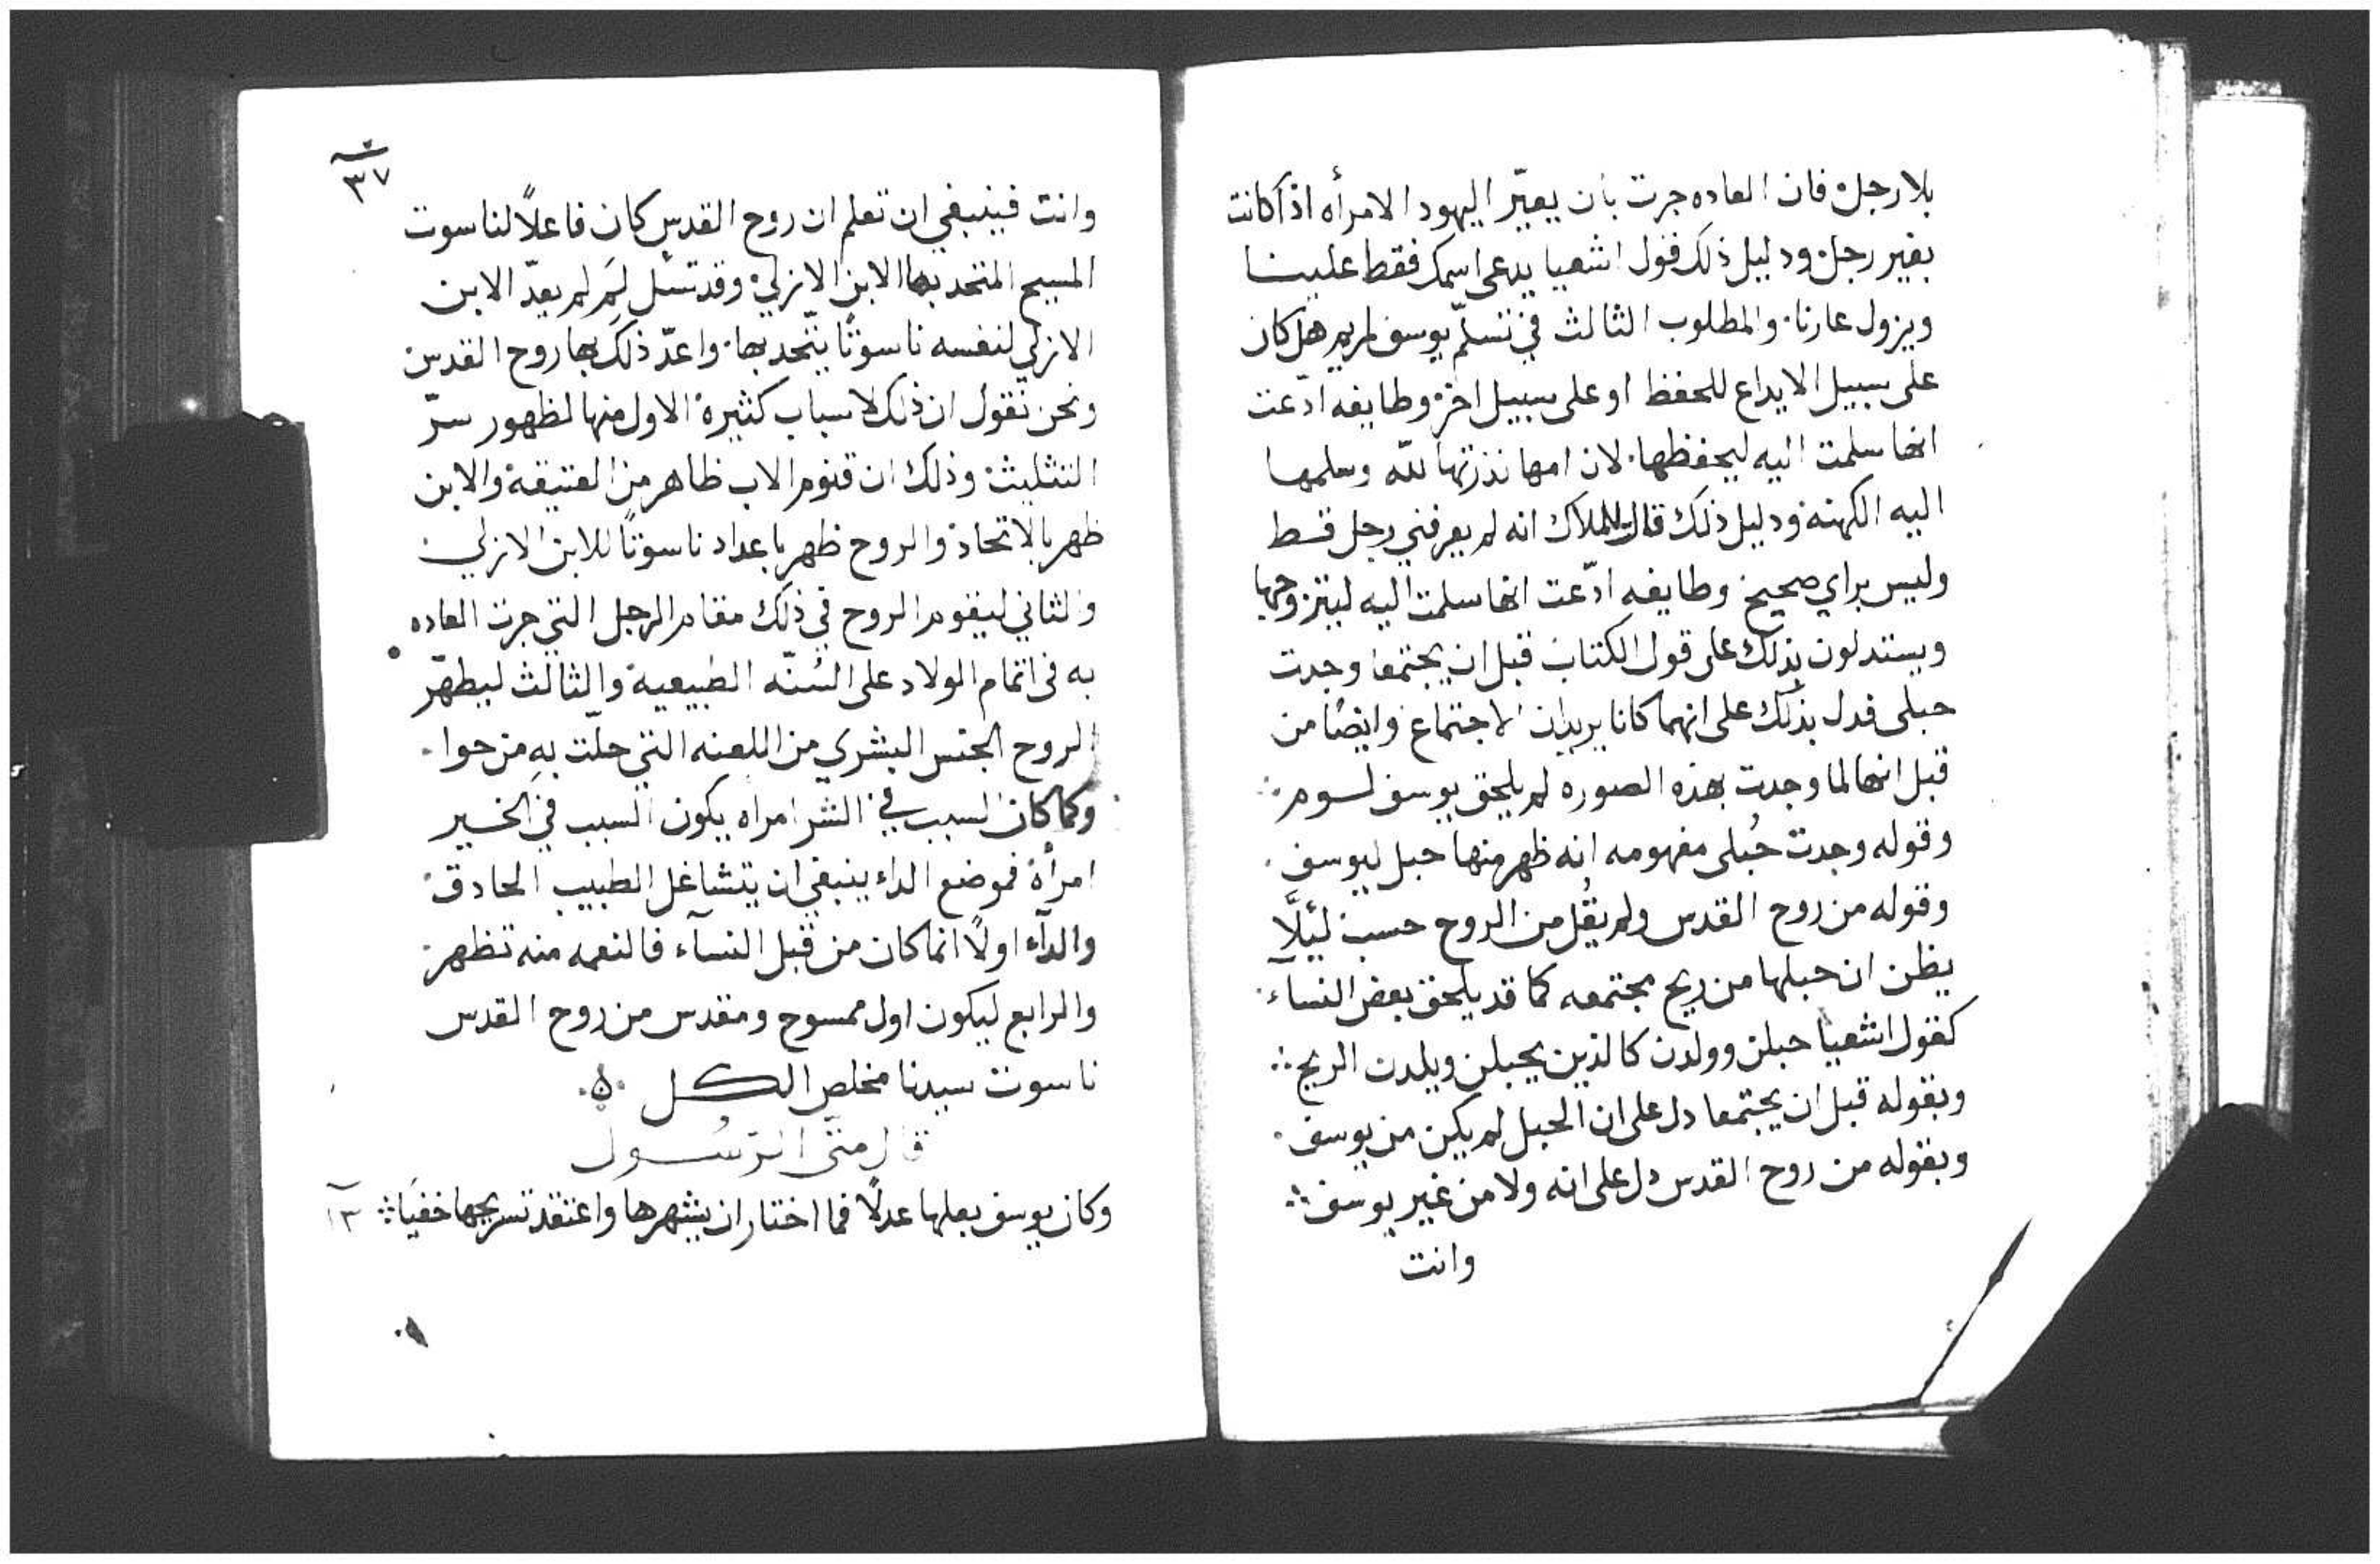 بلا رجل فان العاده جرت بان يعيّر اليهود الامرأه اذا كانت
بغير رجل ودليل ذلك قول اشعيا يدعى اسمك فقط علينا
ويزول عارنا والمطلوب الثالث في تسلّم يوسف لمريم هل كان
على سبيل الايداع للحفظ او على سبيل اخر وطايفه ادّعت
انها سلمت اليه ليحفظها لان امها نذرتها لله وسلمها
اليه الكهنة ودليل ذلك قال للملاك انه لم يعرفني رجل قط
وليس براي صحيح وطايفه ادّعت انها سلمت اليه ليتزوجها
ويستدلون بذلك على قول الكتاب قبل ان يجتمعا وجدت
حبلى فدل بذلك على انهما كانا يريدان الاجتماع وايضًا من
قبل انها لما وجدت بهذه الصوره لم يلحق يوسف لوم
وقوله وجدت حُبلى مفهومه انه ظهر منها حبل ليوسف
وقوله من روح القدس ولم يقُل من الروح حسب لئِلَّا
يظن ان حبلها من ريح مجتمعه كما قد يلحق بعض النسآء
كقول اشعيا حبلن وولدن كالذين يحبلن ويلدن الريح
وبقوله قبل ان يجتمعا دل على ان الحبل لم يكن من يوسف
وبقوله من روح القدس دل على انه ولا من غير يوسف
وانت
٣٧
وانت فينبغي ان تعلم ان روح القدس كان فاعلًا لناسوت
المسيح المتحد بها الابن الازلي وقد تسئل لِمَ لم يعدّ الابن
الازلي لنفسه ناسوتًا يتّحد بها واعدّ ذلك بها روح القدس
ونحن نقول ان ذلك لاسباب كثيرة الاول منها لظهور سرّ
التثليث وذلك ان قنوم الاب ظاهر من العتيقة والابن
ظهر بالاتحاد والروح ظهر باعداد ناسوتًا للابن الازلي
والثاني ليقوم الروح في ذلك مقام الرجل التي جرت العاده
به في اتمام الولاد على السُنّه الطبيعية والثالث ليطهّر
الروح الجنس البشري من اللعنه التي حلّت به من حوا
وكما كان السبب في الشر امراه يكون السبب في الخير
امرأة فموضع الداء ينبغي ان يتشاغل الطبيب الحادق
والدآء اولًا انما كان من قبل النسآء فالنعمه منه تظهر
والرابع ليكون اول ممسوح ومقدس من روح القدس
ناسوت سيدنا مخلص الكل
قال متى الرسُول
وكان يوسف بعلها عدلًا فما اختار ان يشهرها واعتقد تسريحها خفيًا ١٣